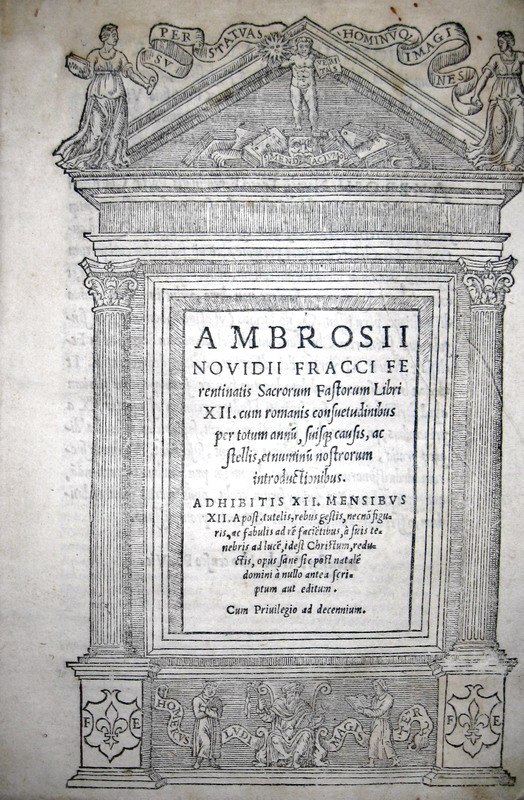 PER STATVAS HOMINVQ IMAGI
SV NES
VERI
MENDACIVM
AMBROSII
NOVIDII FRACCI FE
rentinatis Sacrorum Fastorum Libri
XII. cum romanis consuetudinibus
per totum annū, suisq; causis, ac
stellis, et numinū nostrorum
introductionibus.
ADHIBITIS XII. MENSIBVS
XII. Apost. tutelis, rebus gestis, necnō figu-
ris, ac fabulis ad rē faciētibus, à suis te-
nebris ad lucē, idest Christum, redu-
ctis, opus sane sic post natale
domini à nullo antea scri-
ptum aut editum.
Cum Priuilegio ad decennium.
HOMERVS LVDI MAGIS TER
F E F E